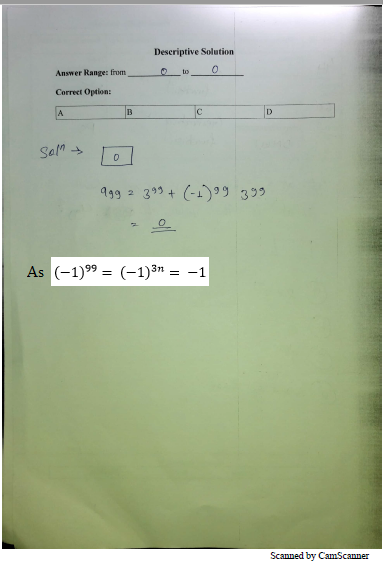 Descriptive Solution
Answer Range: from 0 to 0
Correct Option:
A B C D
Solⁿ → 0
a99 = 3^99 + (-1)^99 3^99
= 0
As (−1)^99 = (−1)^3n = −1
Scanned by CamScanner